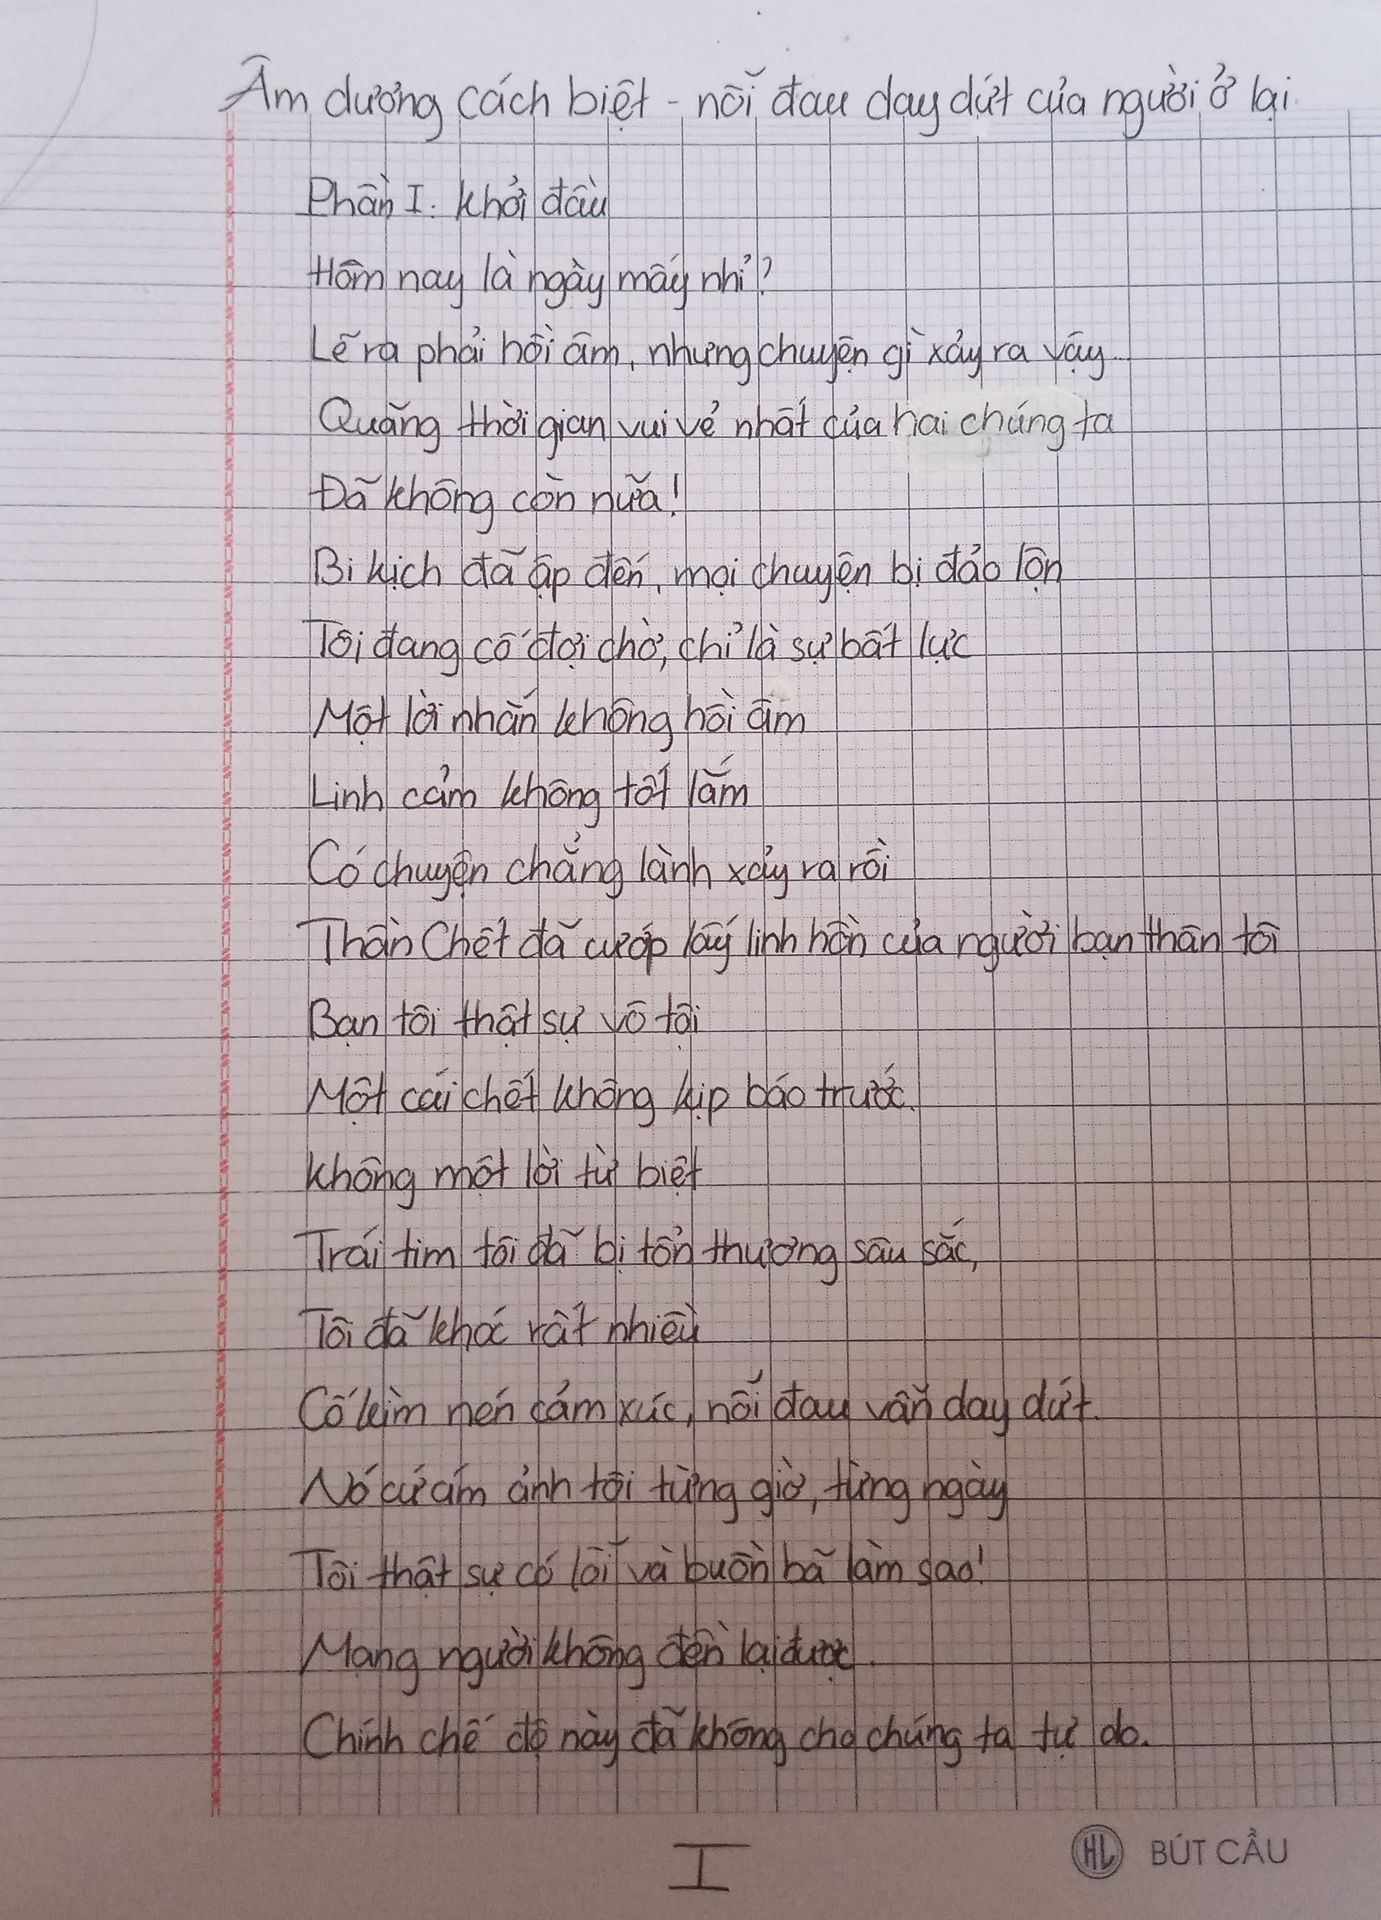 Âm dương cách biệt - nỗi đau day dứt của người ở lại.
Phần I: Khởi đầu
Hôm nay là ngày mấy nhỉ?
Lẽ ra phải hồi âm, nhưng chuyện gì xảy ra vậy..
Quãng thời gian vui vẻ nhất của hai chúng ta
Đã không còn nữa!
Bi kịch đã ập đến, mọi chuyện bị đảo lộn
Tôi đang cố đợi chờ, chỉ là sự bất lực
Một lời nhắn không hồi âm
Linh cảm không tốt lắm
Có chuyện chẳng lành xảy ra rồi
Thần Chết đã cướp lấy linh hồn của người bạn thân tôi
Bạn tôi thật sự vô tội
Một cái chết không kịp báo trước.
Không một lời từ biệt
Trái tim tôi đã bị tổn thương sâu sắc,
Tôi đã khóc rất nhiều
Cố kìm nén cảm xúc, nỗi đau vẫn day dứt.
Nó cứ ám ảnh tôi từng giờ, từng ngày
Tôi thật sự có lỗi và buồn bã làm sao!
Mạng người không đền lại được.
Chính chế độ này đã không cho chúng ta tự do.
I
HL BÚT CẦU